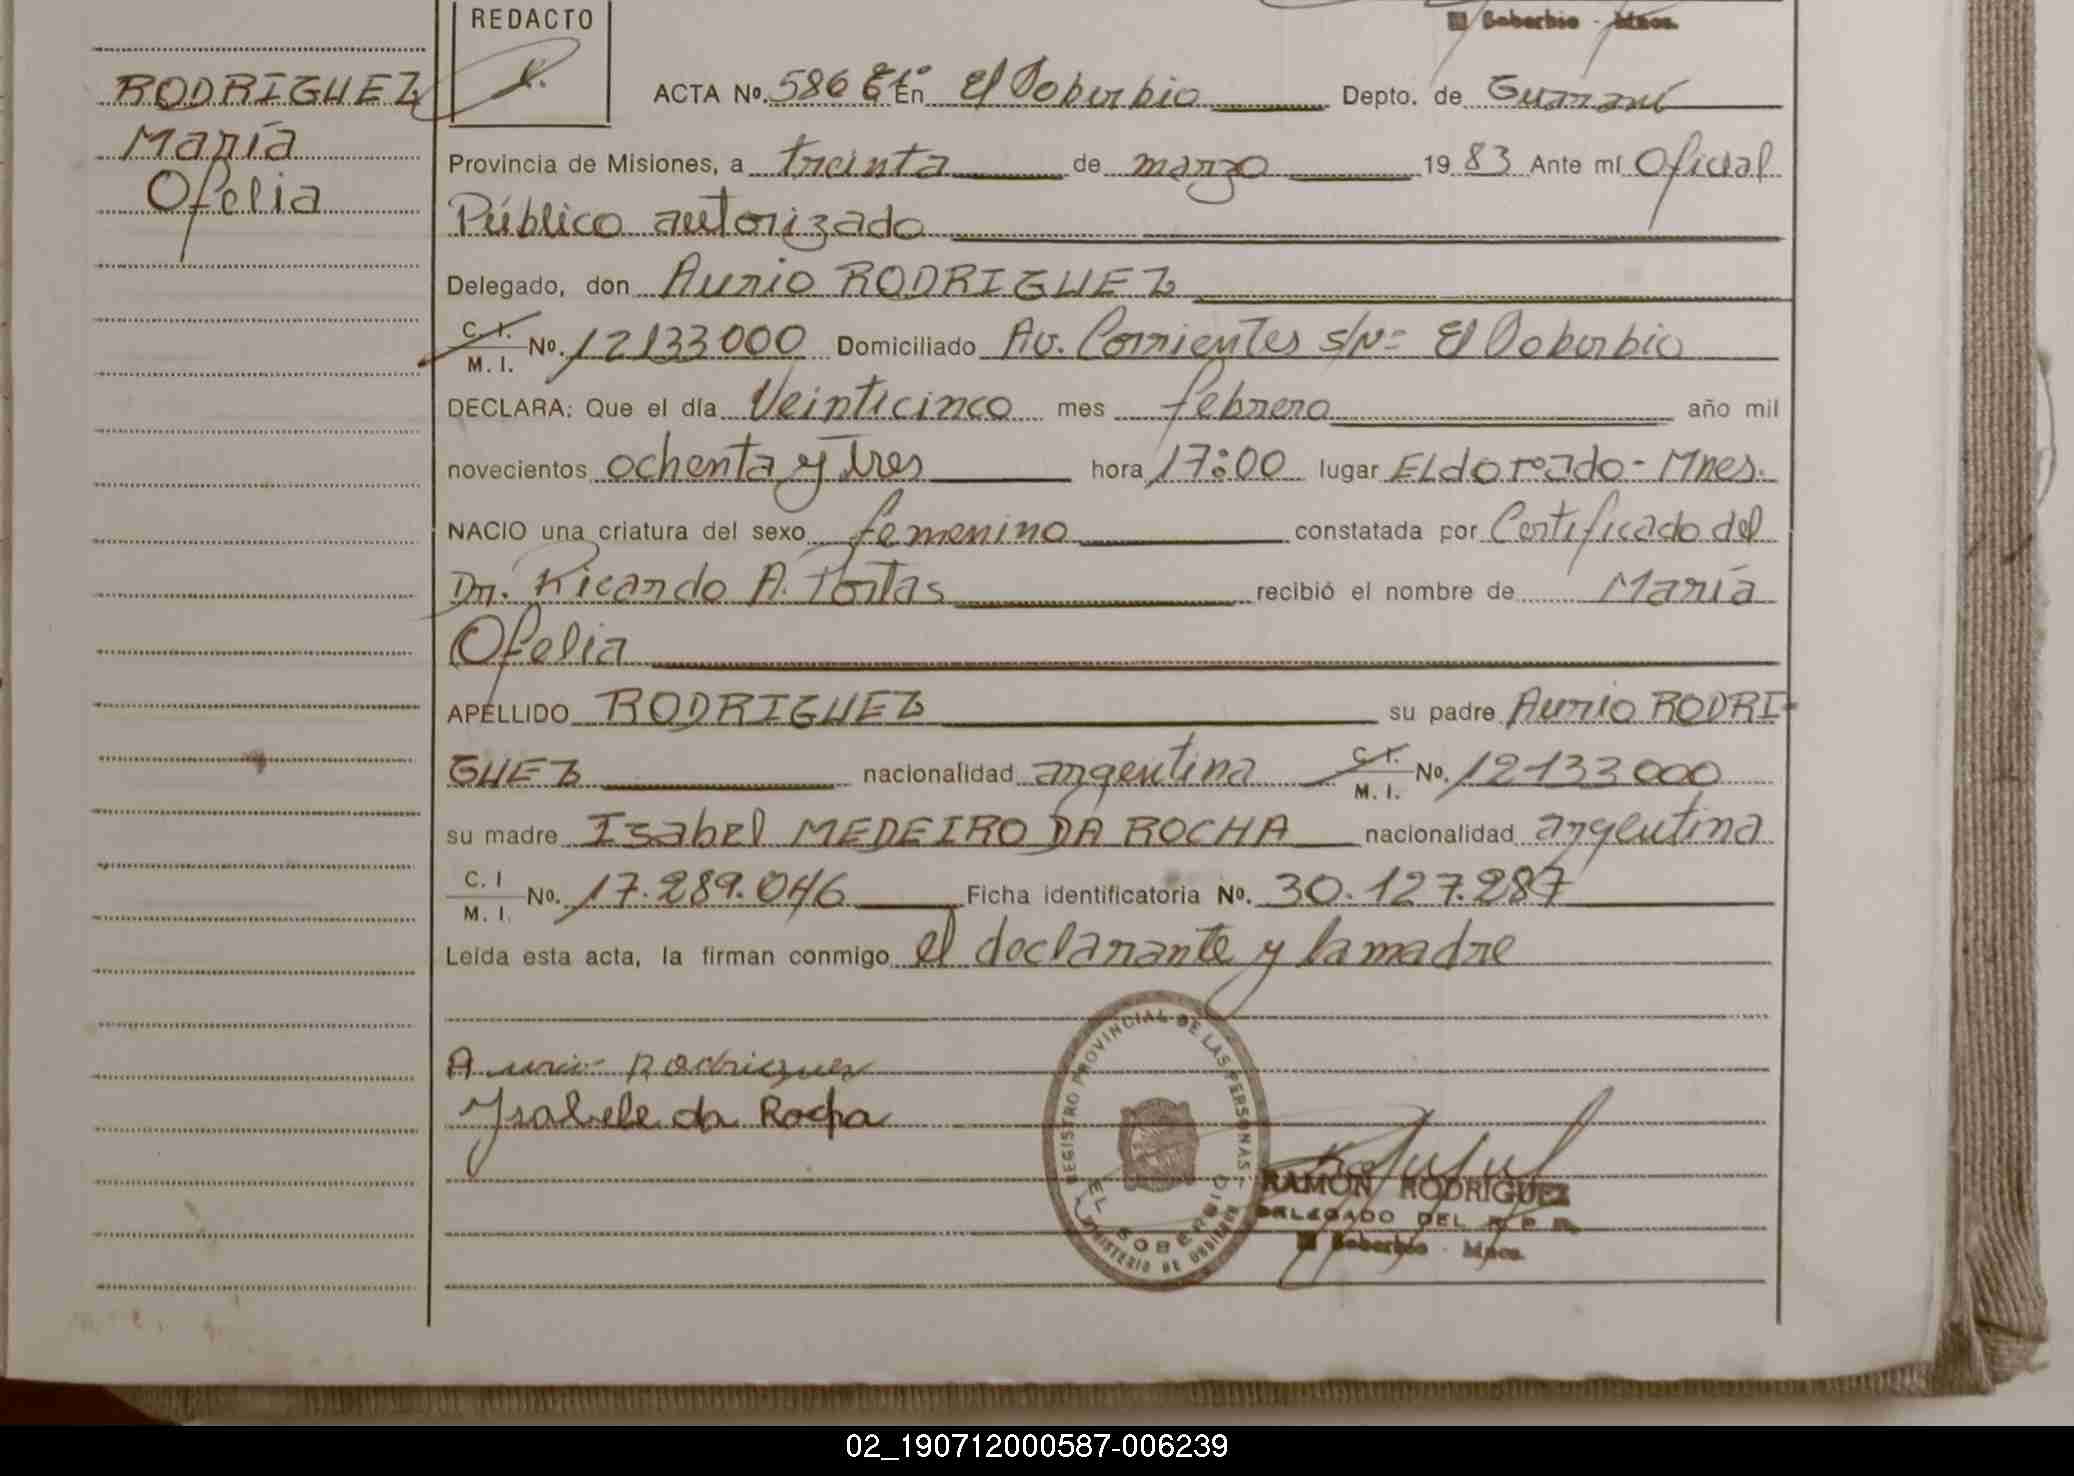 REDACTO
El Soberbio - Mnes.
RODRIGUEZ
María
Ofelia
ACTA Nº. 586 En El Soberbio Depto. de Guaraní
Provincia de Misiones, a treinta de marzo 1983 Ante mí Oficial
Público autorizado
Delegado, don Aurio RODRIGUEZ
C. I. M. I. Nº. 12133000 Domiciliado Av. Corrientes s/Nº El Soberbio
DECLARA: Que el día Veinticinco mes febrero año mil
novecientos ochenta y tres hora 17:00 lugar ELdorado - Mnes.
NACIO una criatura del sexo femenino constatada por Certificado del
Dr. Ricardo A. recibió el nombre de María
Ofelia
APELLIDO RODRIGUEZ su padre Aurio RODRI-
GUEZ nacionalidad argentina C. I. M. I. Nº. 12133000
su madre Isabel MEDEIRO DA ROCHA nacionalidad argentina
C. I M. I. Nº. 17.289.046 Ficha identificatoria Nº. 30.127.287
Leída esta acta, la firman conmigo el declarante y la madre
Aurio Rodriguez
Ysabele da Rocha
REGISTRO PROVINCIAL DE LAS PERSONAS
EL SOBERBIO
MINISTERIO DE GOBIERNO
RAMÓN RODRIGUEZ
DELEGADO DEL R. P. P.
El Soberbio - Mnes.
02_190712000587-006239